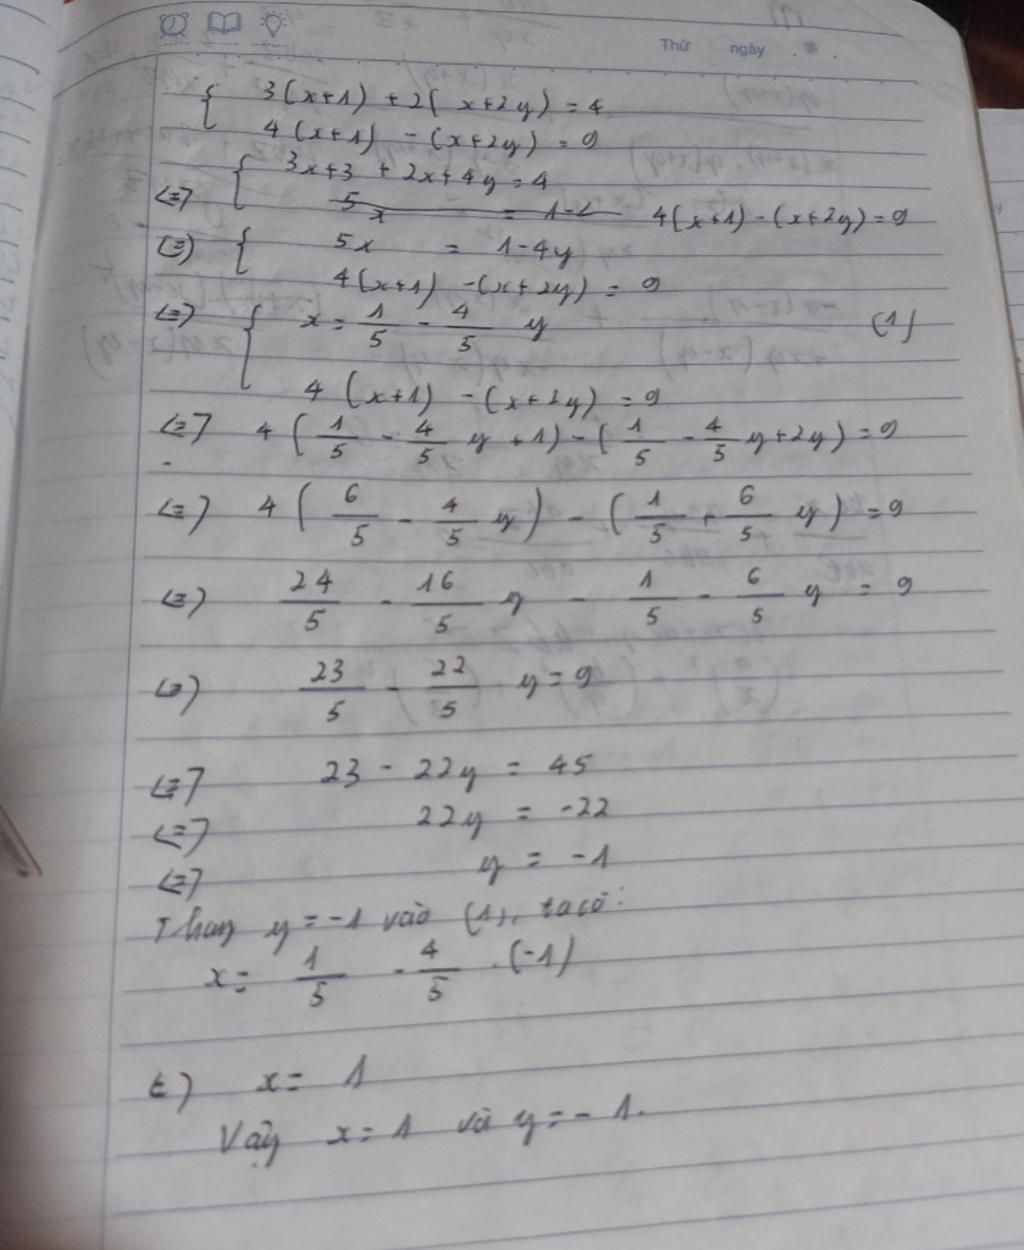 Thứ ngày
{ 3(x+1) + 2(x+2y) = 4
4(x+1) - (x+2y) = 9
<=> { 3x+3 + 2x+4y = 4
4(x+1) - (x+2y) = 9
<=> { 5x = 1-4y
4(x+1) - (x+2y) = 9
<=> { x = 1/5 - 4/5 y (1)
4(x+1) - (x+2y) = 9
<=> 4(1/5 - 4/5 y + 1) - (1/5 - 4/5 y + 2y) = 9
<=> 4(6/5 - 4/5 y) - (1/5 + 6/5 y) = 9
<=> 24/5 - 16/5 y - 1/5 - 6/5 y = 9
<=> 23/5 - 22/5 y = 9
<=> 23 - 22y = 45
<=> 22y = -22
<=> y = -1
Thay y = -1 vào (1), ta có:
x = 1/5 - 4/5 . (-1)
x = 1
Vậy x = 1 và y = -1.